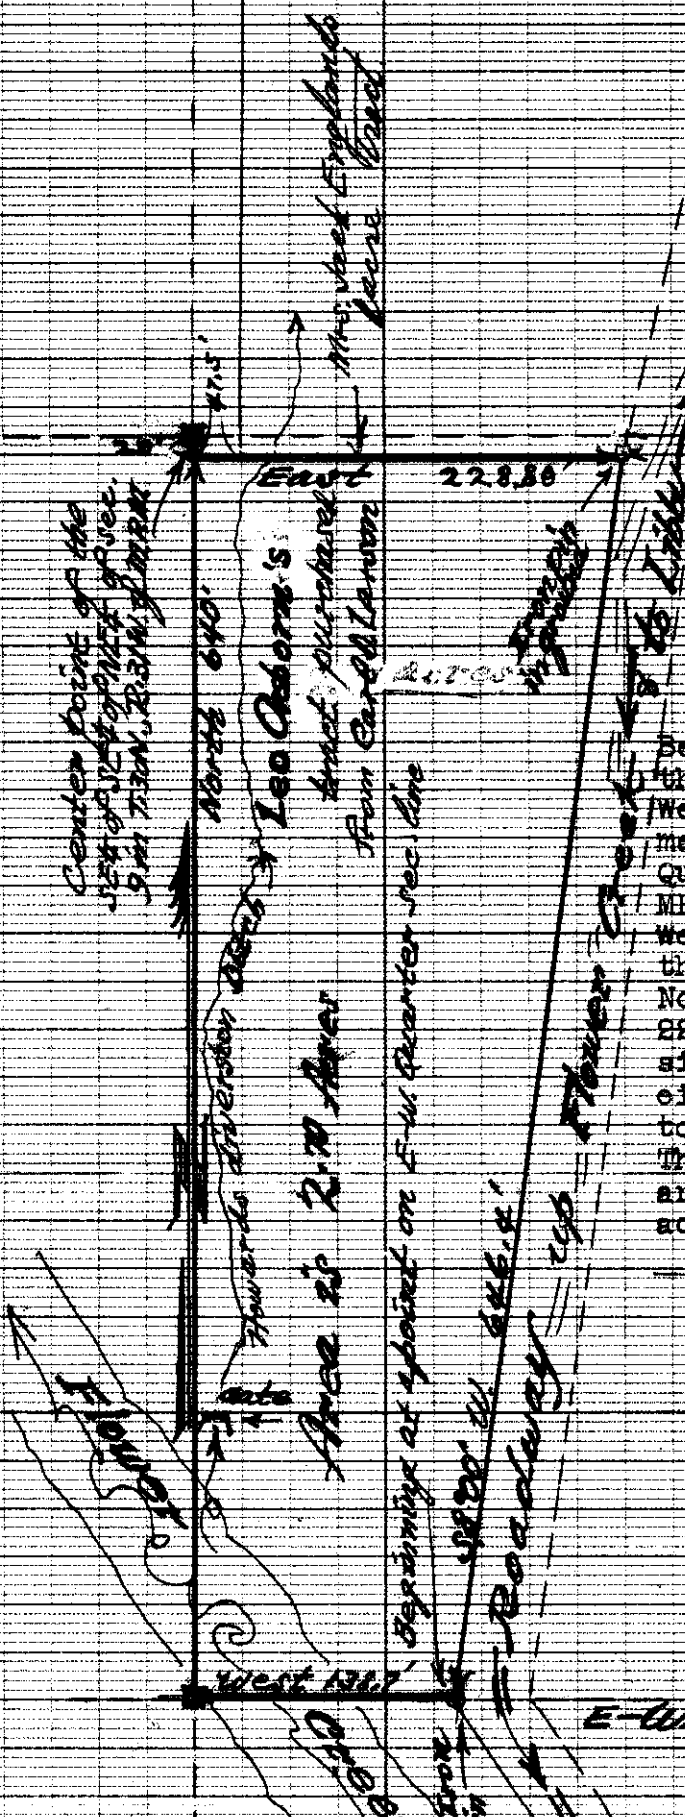 Mrs. Jack England's
acre tract
47.5'
East 228.80'
Center point of the
SE¼ of SE¼ of NE¼ of Sec.
9 in T.30N., R.31W. of M.P.M.
North 640'
Leo Osborn's
tract purchased
from Carl D Larson
Acres
Iron pin
in ground
to Libby
Howards diversion Ditch
Area is 2.70 Acres
Beginning at a point on E-W. Quarter sec. line
S8°00' W. 646.4'
Roadway up Flower Creek
gate
Flow
West 138.7'
Iron
E-W
th
We
me
Qu
We
th
No
22
si
of
to
Th
ar
ac